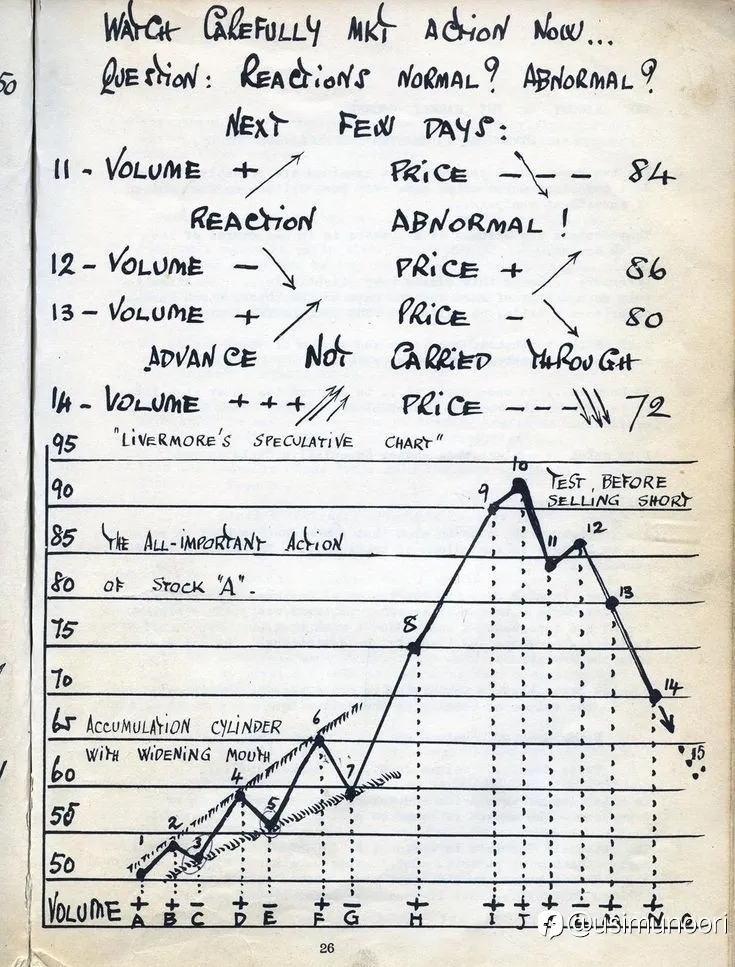 WATCH CAREFULLY MKT ACTION NOW...
50
QUESTION: REACTIONS NORMAL? ABNORMAL?
NEXT FEW DAYS:
11 - VOLUME + PRICE - - - 84
REACTION ABNORMAL!
12 - VOLUME - PRICE + 86
13 - VOLUME + PRICE - 80
ADVANCE NOT CARRIED THROUGH
14 - VOLUME + + + PRICE - - - 72
95 "LIVERMORE'S SPECULATIVE CHART"
10
90 9 TEST BEFORE
SELLING SHORT
85 THE ALL-IMPORTANT ACTION 11 12
80 OF STOCK "A". 13
75 8
70 14
65 ACCUMULATION CYLINDER 6
WITH WIDENING MOUTH 15
60 4 7
55 5
1 2 3
50
VOLUME + + - + - + - + + + + - +
A B C D E F G H I J N
@usimunoori
26